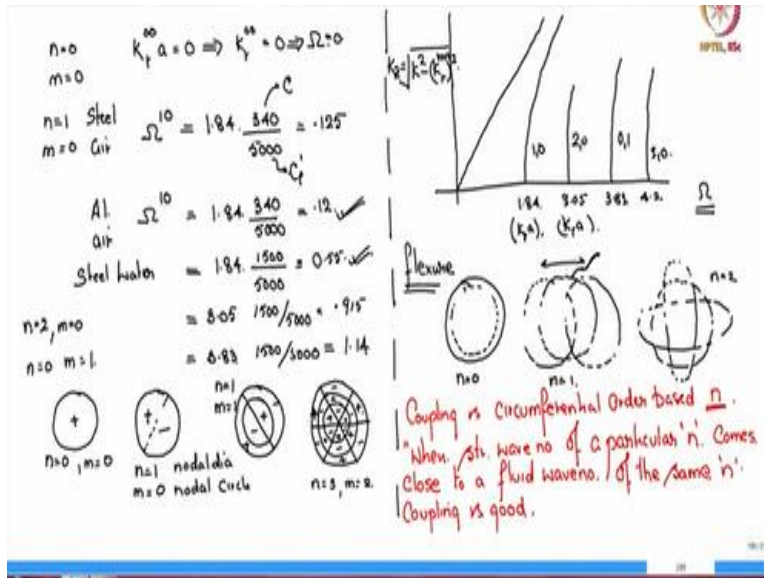 n=0 K_r^00 a = 0 ⟹ K_r^00 = 0 ⟹ Ω=0
m=0
n=1 Steel Ω^10 = 1.84. 340/5000 = .125
m=0 air
C
C_l'
Al. Ω^10 = 1.84. 340/5000 = .12 ✓
air
Steel water = 1.84. 1500/5000 = 0.55 ✓
n=2, m=0 = 3.05 1500/5000 = .915
n=0 m=1. = 3.83 1500/5000 = 1.14
+
n=0, m=0
+ −
n=1 nodal dia
m=0 nodal circle
n=1
m=1
− +
n=3, m=2.
NPTEL, IISc
1,0 2,0 0,1 3,0.
1.84 3.05 3.83 4.2. Ω
(K_r a), (K_r a).
flexure
n=0
n=1.
n=2
Coupling is Circumferential Order based n.
"When str. wave no of a particular 'n'. Comes
close to a fluid waveno. of the same 'n'.
Coupling is good.